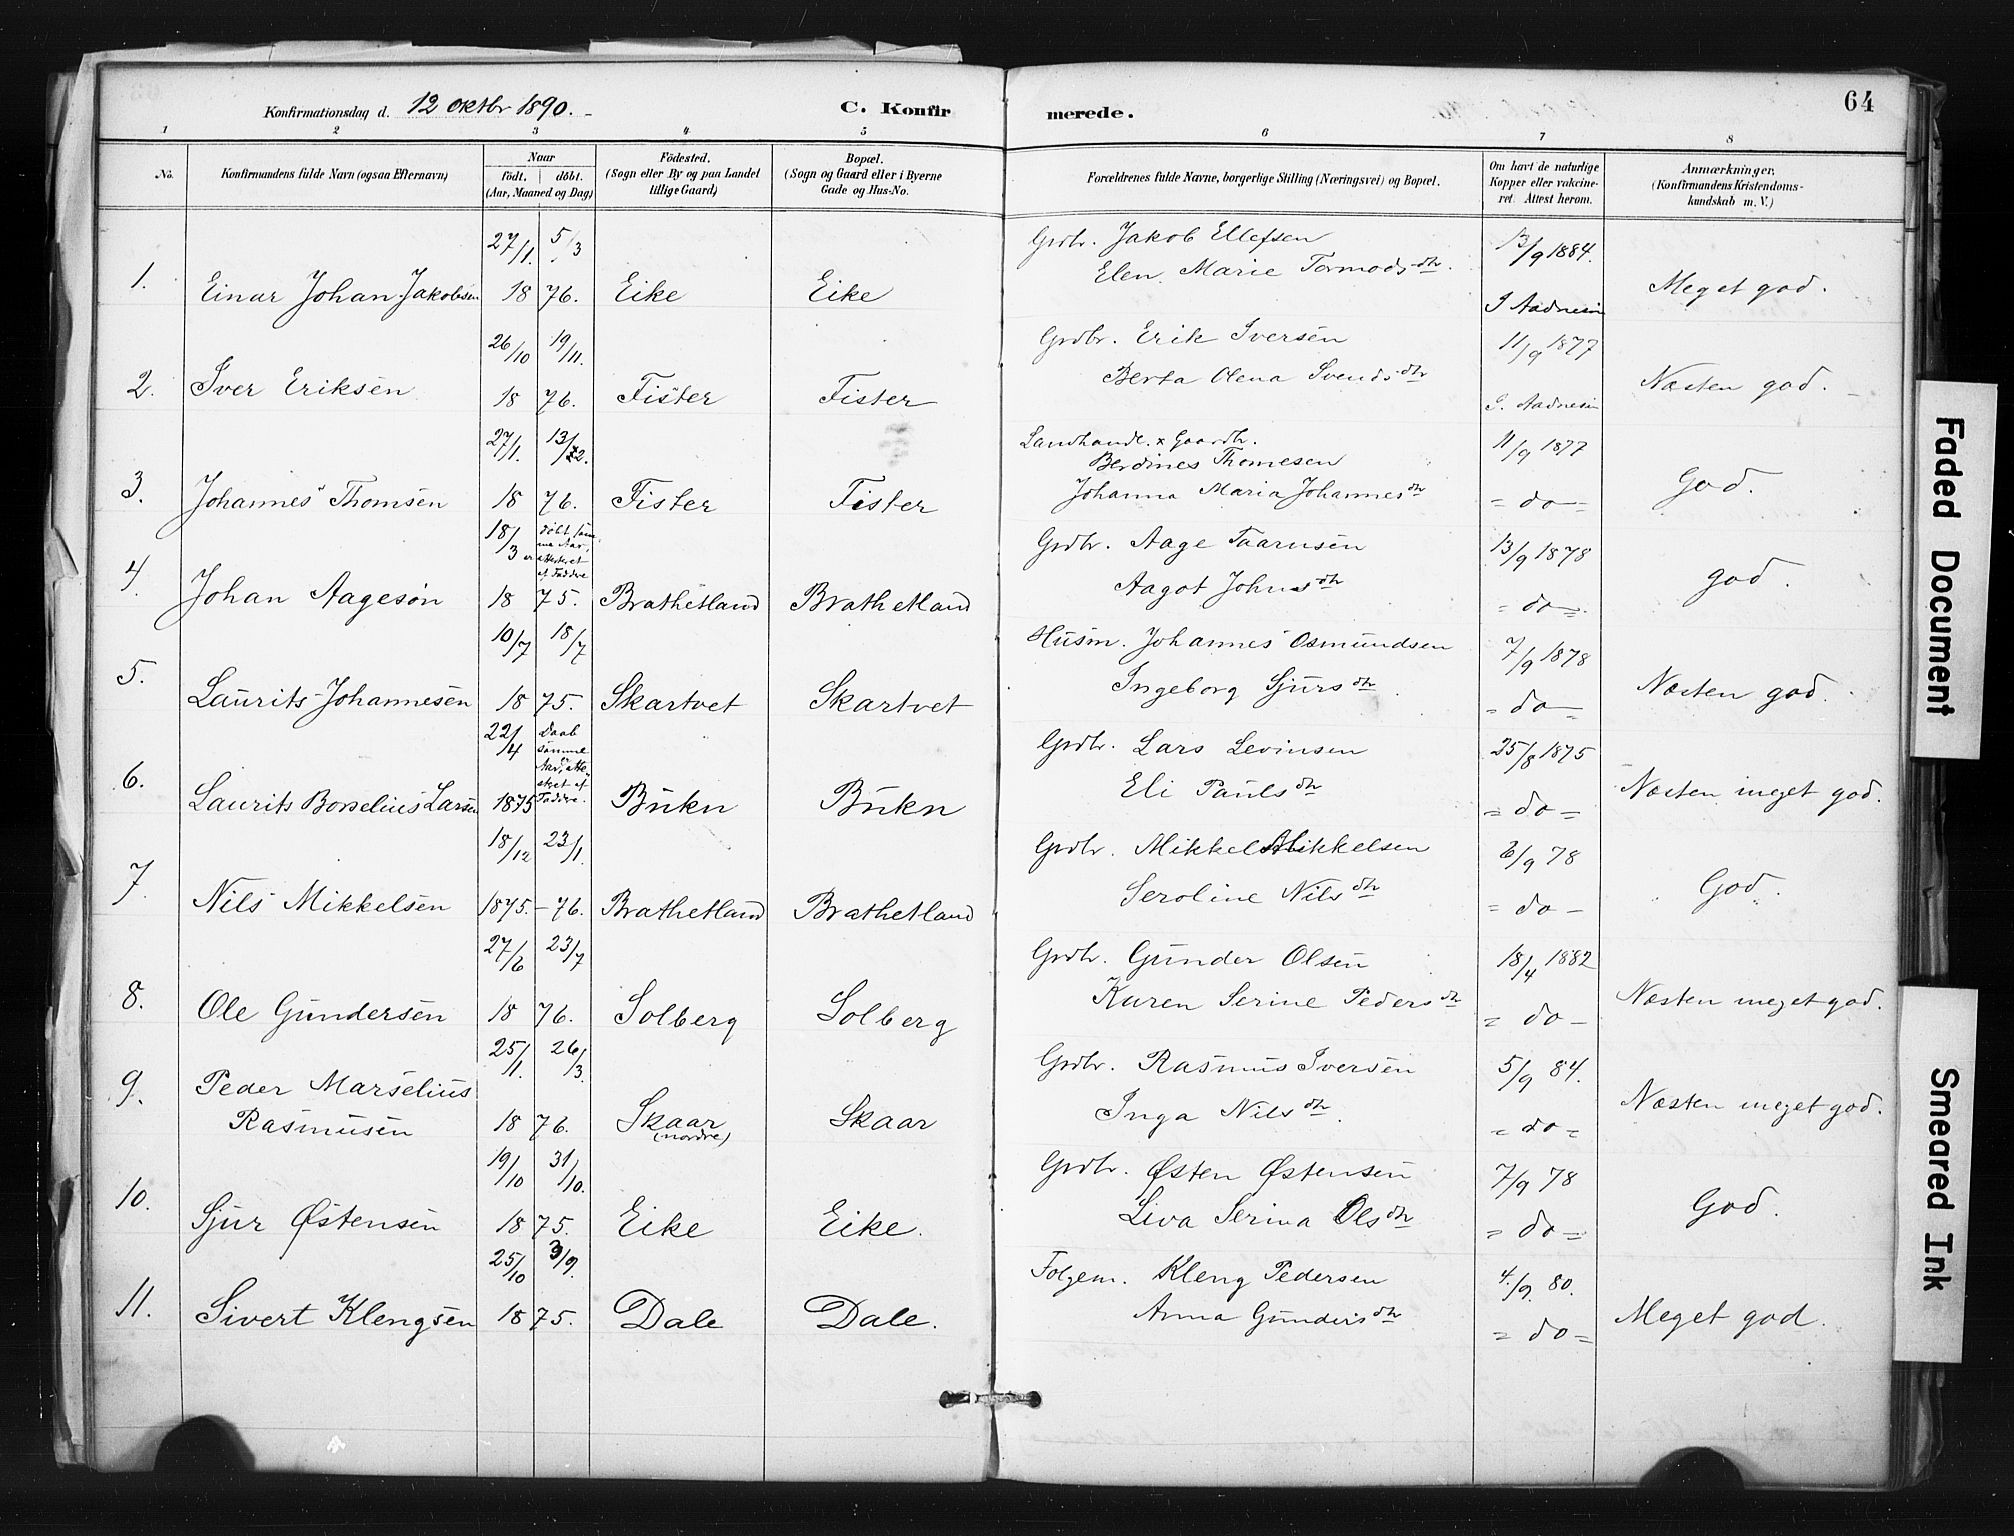 Konfirmationsdag d. 12 Oktbr 1890. C. Konfirmerede. 64
1 2 3 4 5 6 7 8
No. Konfirmandens fulde Navn (ogsaa Efternavn) Naar födt. döbt. (Aar, Maaned og Dag) Födested. (Sogn eller By og paa Landet tillige Gaard) Bopæl. (Sogn og Gaard eller i Byerne Gade og Hus-No. Forældrenes fulde Navne, borgerlige Stilling (Næringsvei) og Bopæl. Om havt de naturlige Kopper eller vakcineret. Attest herom. Anmærkninger. (Konfirmandens Kristendomskundskab m. V.)
27/1. 5/3 Grdbr. Jakob Ellefsen 13/9 1884.
1. Einar Johan Jakobsen 18 76. Eike Eike Elen Marie Tormodsdtr. I Aadnesen Meget god.
26/10 19/11. Grdbr. Erik Iversen 11/9 1877
2. Iver Eriksen 18 76. Fister Fister Berta Olena Svendsdtr I. Aadnesen Næsten god.
27/1. 13/2. Landhandl. x Gaardbr. 11/9 1877
Berdines Thomesen
3. Johannes Thomsen 18 76. Fister Fister Johanna Maria Johannesdtr = do = God.
18/3 döbt samme Aar, er attesteret af Faddre Grdbr. Aage Taarnsen 13/9 1878
4. Johan Aagesøn 18 75. Brathetland Brathetland Aagot Johnsdtr = do = god.
10/7 18/7 Husm. Johannes Osmundsen 7/9 1878
5. Laurits Johannesen 18 75. Skartvet Skartvet Ingeborg Sjursdtr = do = Næsten god.
22/4 Daab samme Aar, er attesteret af Faddre. Grdbr. Lars Levinsen 25/8 1875
6. Laurits Borselius Larsen 1875 Bukn Bukn Eli Paulsdtr = do = Næsten meget god.
18/12 23/1. Grdbr. Mikkel Mikkelsen 6/9 78
7. Nils Mikkelsen 1875. - 76. Brathetland Brathetland Seroline Nilsdtr = do - God.
27/6 23/7 Grdbr. Gunder Olsen 18/4 1882
8. Ole Gundersen 18 76. Solberg Solberg Karen Serine Pedersdtr = do - Næsten meget god.
25/1. 26/3. Grdbr. Rasmus Iversen 5/9 84.
9. Peder Marselius Rasmusen 18 76. Skaar (nordre) Skaar Inga Nilsdtr. = do = Næsten meget god.
19/10 31/10. Grdbr. Østen Østensen 7/9 78
10. Sjur Østensen 18 75. Eike Eike. Liva Serina Olsdtr = do = God.
25/10 3/9. Folgem. Kleng Pedersen 4./9. 80.
11. Sivert Klengsen 18 75. Dale Dale. Anna Gundersdtr = do = Meget god.
Faded Document
Smeared Ink